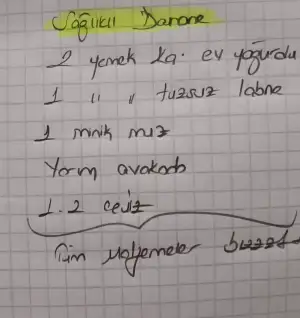 Sağlıklı Danone
2 yemek ka. ev yoğurdu
1 " " tuzsuz labne
1 minik muz
Yarım avokado
1-2 ceviz
Tüm malzemeler